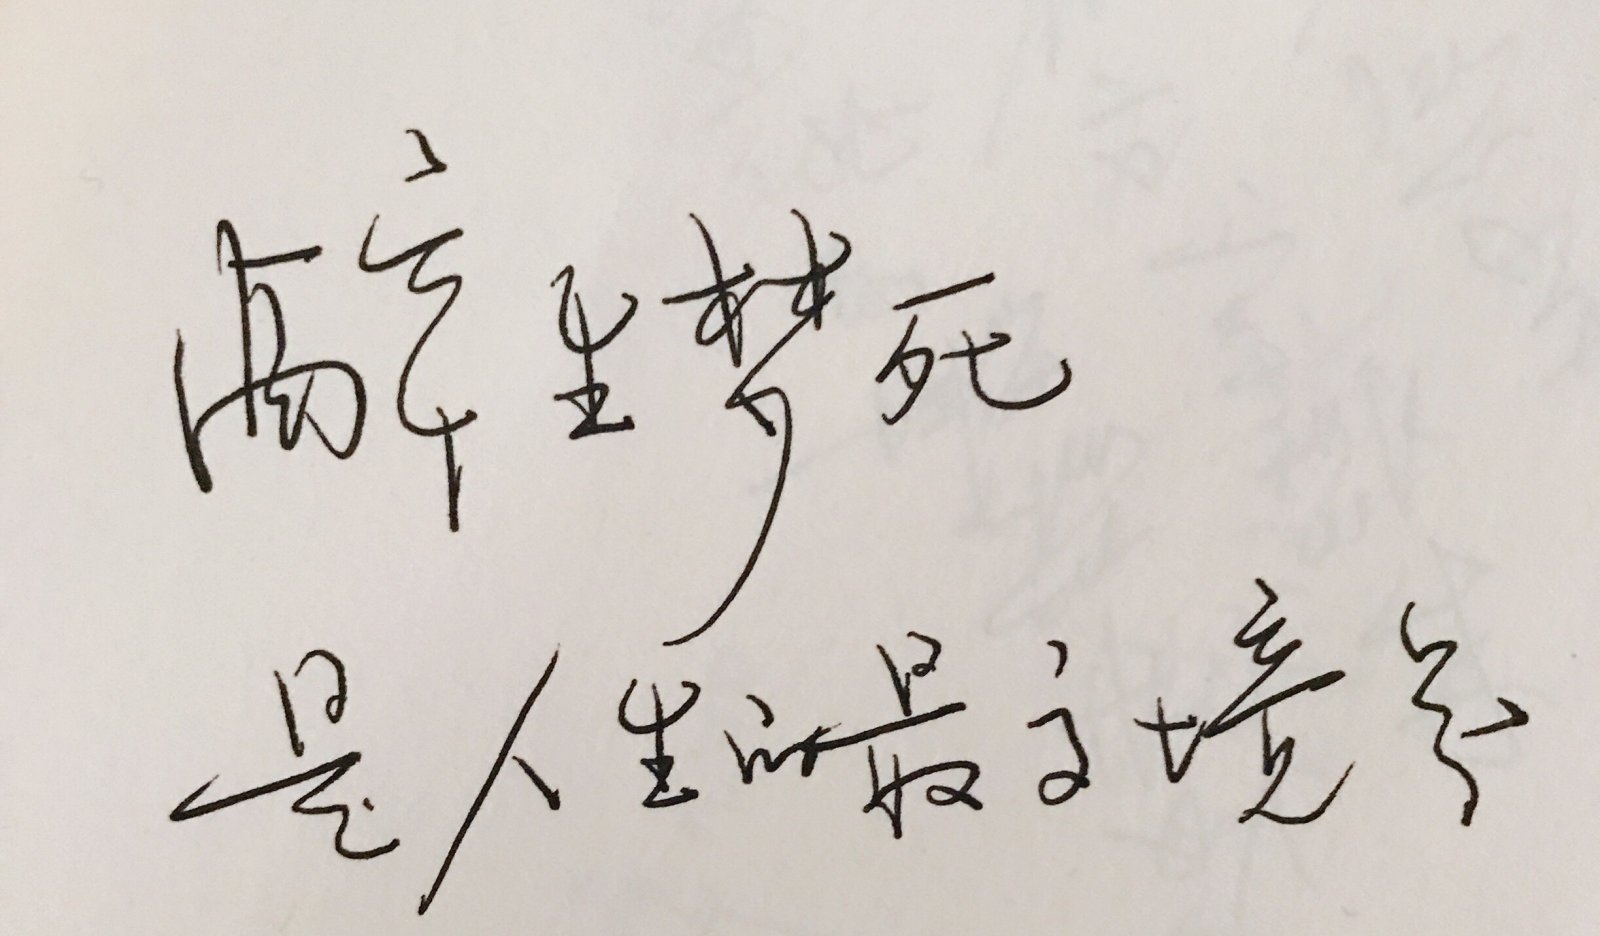 醉生梦死
是人生的最高境界